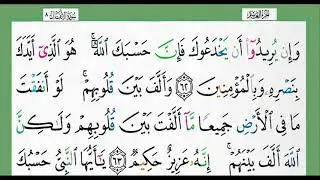 الجزء العاشر سورة الأنفال ٨
وَإِن يُرِيدُوٓا۟ أَن يَخْدَعُوكَ فَإِنَّ حَسْبَكَ ٱللَّهُ ۚ هُوَ ٱلَّذِىٓ أَيَّدَكَ
بِنَصْرِهِۦ وَبِٱلْمُؤْمِنِينَ ٦٢ وَأَلَّفَ بَيْنَ قُلُوبِهِمْ ۚ لَوْ أَنفَقْتَ
مَا فِى ٱلْأَرْضِ جَمِيعًا مَّآ أَلَّفْتَ بَيْنَ قُلُوبِهِمْ وَلَـٰكِنَّ
ٱللَّهَ أَلَّفَ بَيْنَهُمْ ۚ إِنَّهُۥ عَزِيزٌ حَكِيمٌ ٦٣ يَـٰٓأَيُّهَا ٱلنَّبِىُّ حَسْبُكَ